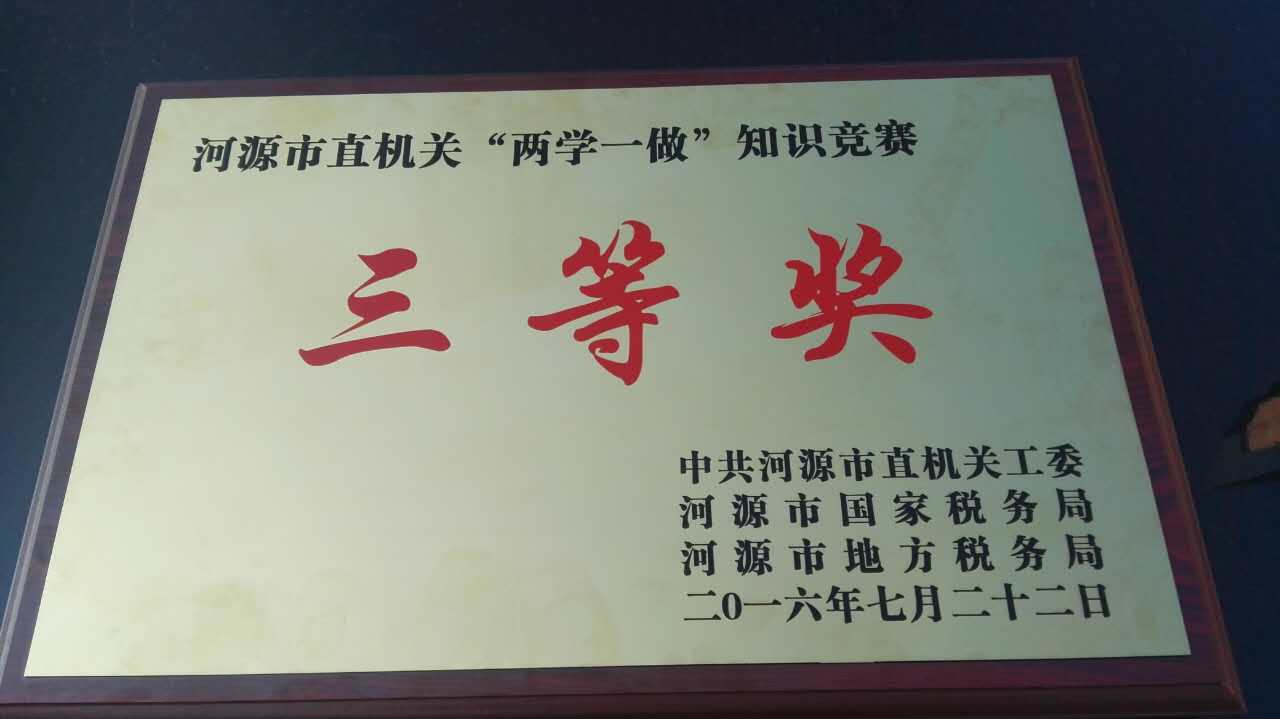 河源市直机关“两学一做”知识竞赛
三等奖
中共河源市直机关工委
河源市国家税务局
河源市地方税务局
二0一六年七月二十二日